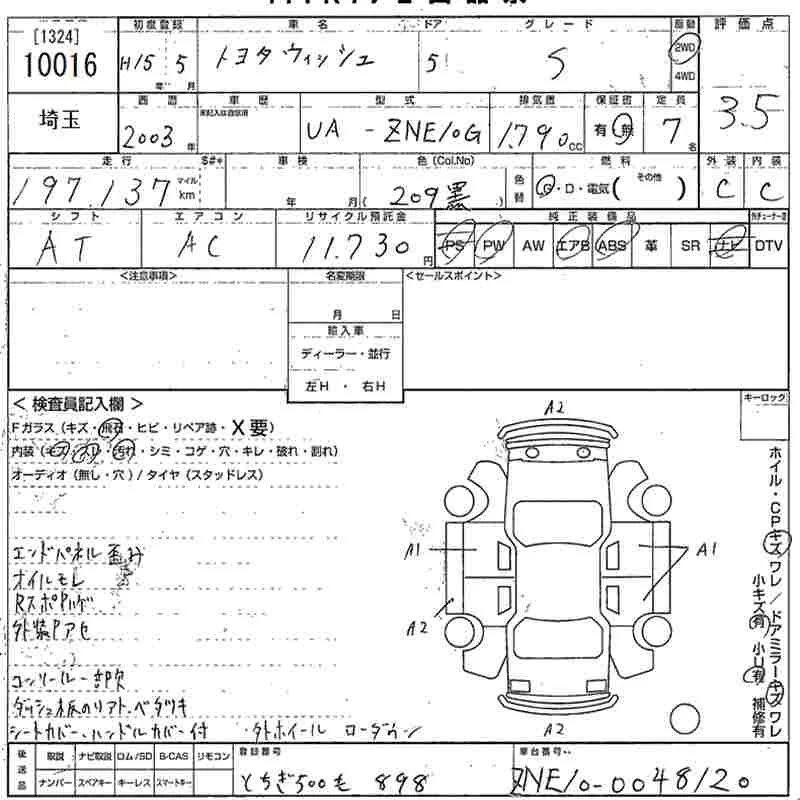 [1324]
10016
初度登録 車名 ドア グレード 駆動 評価点
H15 年 5 月 トヨタ ウィッシュ 5 S 2WD 4WD 3.5
埼玉
西暦 車歴 型式 排気量 保証書 定員
2003 年 未記入は自家用 UA - ZNE10G 1.790 cc 有・無 7 名
走行 $#* 車検 色(Col.No) 色替 燃料 外装 内装
197.137 マイル km 年 月 ( 209 黒 ) G・D・電気( その他 ) C C
シフト エアコン リサイクル預託金 純正装備品
AT AC 11.730 円 PS PW AW エアB ABS 革 SR ナビ DTV
<注意事項> 名変期限 <セールスポイント>
月 日
輸入車
ディーラー・並行
左H ・ 右H
< 検査員記入欄 > キーロック
Fガラス (キズ・飛石・ヒビ・リペア跡・X要)
内装 (キズ・スレ・汚れ・シミ・コゲ・穴・キレ・破れ・割れ)
オーディオ (無し・穴) / タイヤ (スタッドレス)
エンドパネル 歪み
オイルモレ
RスポPハゲ
外装Pアセ
コンソール一部欠
ダッシュ板のリアト、ベタツキ
シートカバー、ハンドルカバー付 ・外ホイール ローダウン
A2
A1
A1
A2
A2
ホイル・CPキズ ワレ / ドアミラーキズ ワレ
小キズ有 小U有 補修有
後送品 取説 ナビ取説 ロム/SD B-CAS リモコン 登録番号 車台番号
ナンバー スペアキー キーレス スマートキー とちぎ500も 898 ZNE10-0048120